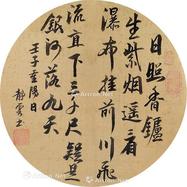 日照香鑪
生紫烟遥看
瀑布挂前川飛
流直下三千尺疑是
銀河落九天
壬子重陽日